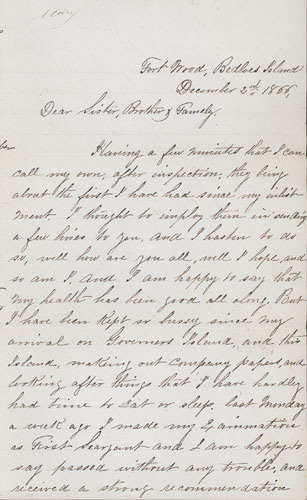 Fort Wood, Bedloes Island
December 2nd. 1866,
Dear Sister, Brother & Famely.
Having a few minutes that I can
call my own, after inspection, they being
about the first I have had since my inlist-
ment. I thought to imploy them in sending
a few lines to you, and I hasten to do
so, well how are you all, well I hope, and
so am I, and I am happy to say that
my health has been good all along. But
I have been kept so bussy since my
arrival on Governers Island, and this
Island, making out company papers, and
looking after things that I have hardley
had time to eat or sleep, last Monday
a week ago I made my Examination
as First Seargant and I am happy to
say passed without any trouble, and
received a strong recommendation